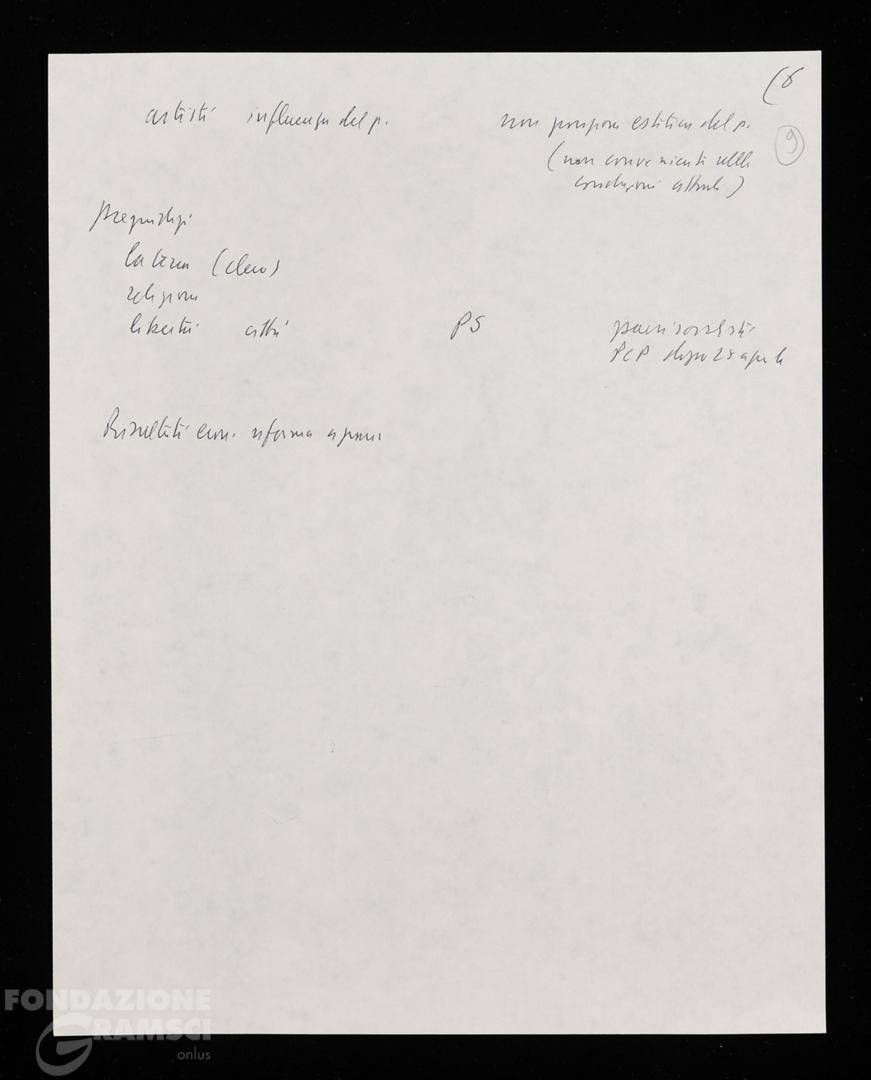 (6
artisti influenza del p. non propone estetica del p.
9
(non convenienti nelle
condizioni attuali)
pregiudizi
(clero)
religione
libertà altri PS paesi socialisti
PCP dopo 25 aprile
Risultati econ. riforma agraria
FONDAZIONE
GRAMSCI
onlus